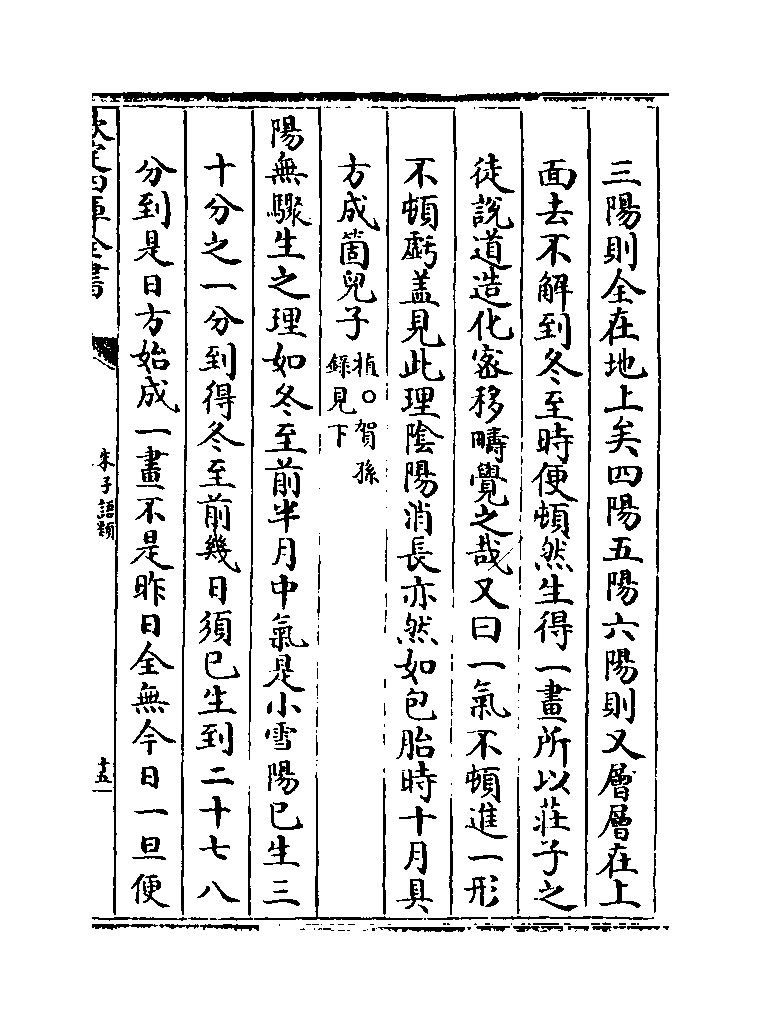 三陽則全在地上矣四陽五陽六陽則又層層在上
面去不解到冬至時便頓然生得一畫所以莊子之
徒說道造化密移疇覺之哉又曰一氣不頓進一形
不頓虧蓋見此理陰陽消長亦然如包胎時十月具
方成箇兒子植○賀孫
錄見下
陽無驟生之理如冬至前半月中氣是小雪陽已生三
十分之一分到得冬至前幾日須已生到二十七八
分到是日方始成一畫不是昨日全無今日一旦便
欽定四庫全書
朱子語類
十五